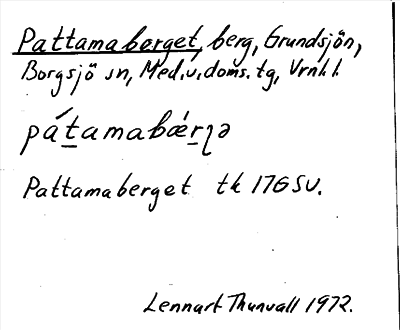 Pattamaberget, berg, Grundsjön,
Borgsjö sn, Med.v. doms. tg, Vrnl. l.
pát̲amabǽr̲ʅə
Pattamaberget tk 17G SV.
Lennart Thunvall 1972.